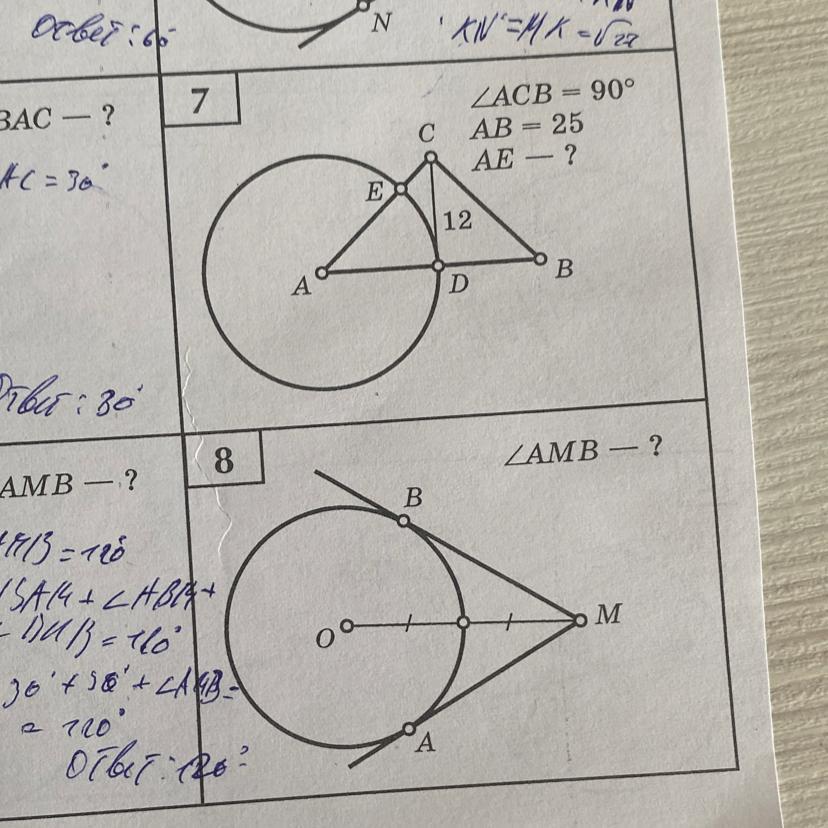 Ответ: 60°
N
KN = MK = √27
BAC — ?
AC = 30°
Ответ: 30°
7
∠ACB = 90°
AB = 25
AE — ?
C
E
12
A
D
B
AMB — ?
= 120°
∠ABM +
= 180°
30° +
= 120°
Ответ: 120°
8
∠AMB — ?
B
O
M
A